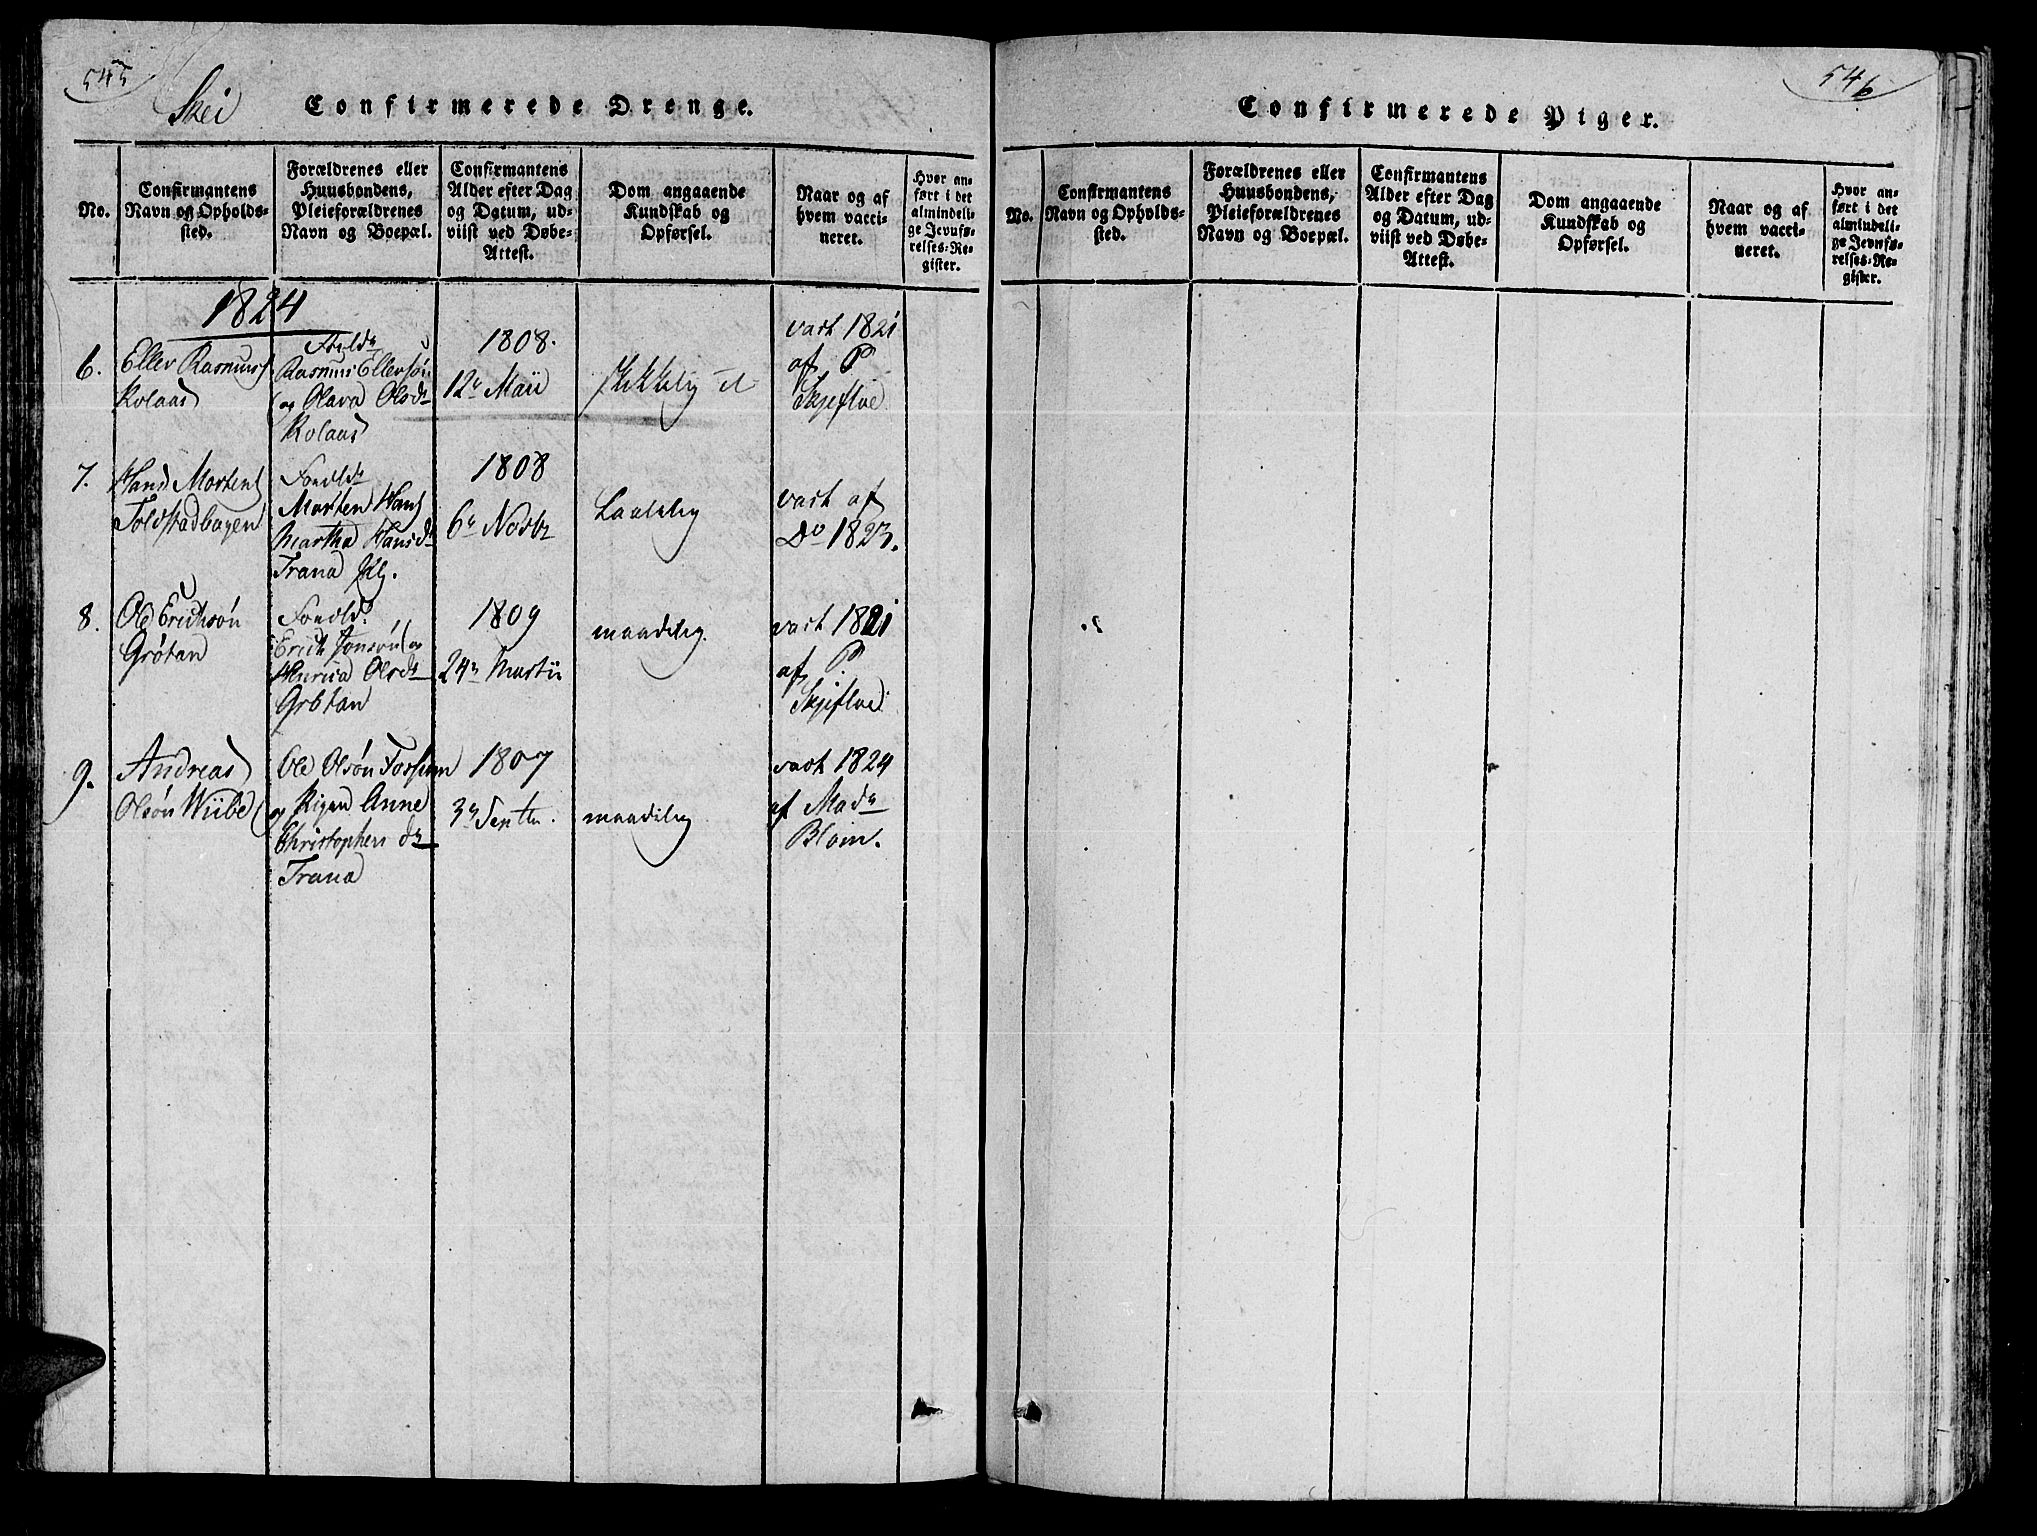 545
Skei
Confirmerede Drenge.
No.
Confirmantens
Navn og Opholds-
sted.
Forældrenes eller
Huusbondens,
Pleieforældrenes
Navn og Boepæl.
Confirmantens
Alder efter Dag
og Datum, ud-
viist ved Døbe-
Attest.
Dom angaaende
Kundskab og
Opførsel.
Naar og af
hvem vacci-
neret.
Hvor an-
ført i det
almindeli-
ge Jevnfø-
relses-Re-
gister.
1824
6.
Ellev Rasmus
Rolaas
Foreldr
Rasmus Ellevsøn
og Olava Olsdr
Rolaas
1808.
12te Maii
skikkelig
vact 1821
af P
Skjefloe
7.
Hans Mortens
Toldstadhagen
Foreldr
Morten Hans
Martha Hansdr
Trana
1808
6te Novbr
vact af
Do 1823.
8.
Ole Erichsøn
Grøtan
Foreld.
Erich Jonsøn og
Olsdr
Grøtan
1809
24de Martii
maadelig.
vact 1821
af P
Skjefloe
9.
Andreas
Olsøn Wiibe
Ole Olsøn
og Pigen Anne
Christophersdr
Trana
1807
3de Septbr.
maadelig
vact 1824
af Madm
Blom.
546
Confirmerede Piger.
No.
Confirmantens
Navn og Opholds-
sted.
Forældrenes eller
Huusbondens,
Pleieforældrenes
Navn og Boepæl.
Confirmantens
Alder efter Dag
og Datum, ud-
viist ved Døbe-
Attest.
Dom angaaende
Kundskab og
Opførsel.
Naar og af
hvem vacci-
neret.
Hvor an-
ført i det
almindeli-
ge Jevnfø-
relses-Re-
gister.